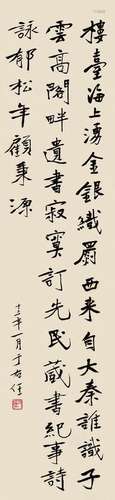 樓臺海上湧金銀織罽西来自大秦誰識子
雲高閣畔遺書寂寞訂先民藏書紀事詩
詠郁松年顧秉源
年一月于右任